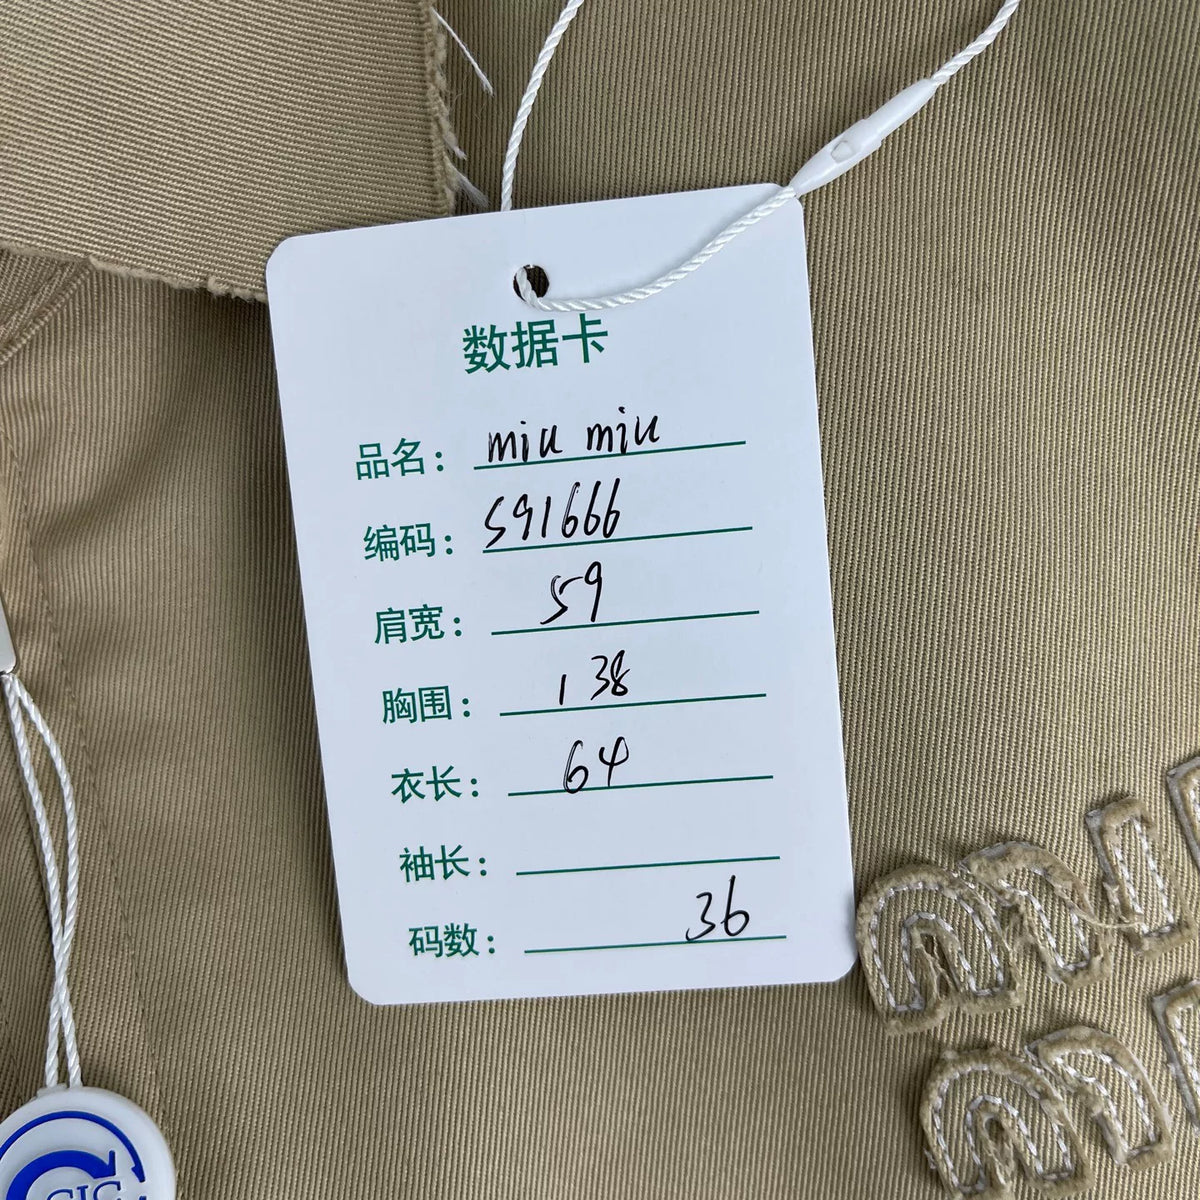 数据卡
品名： miu miu
编码： 591666
肩宽： 59
胸围： 138
衣长： 64
袖长：
码数： 36